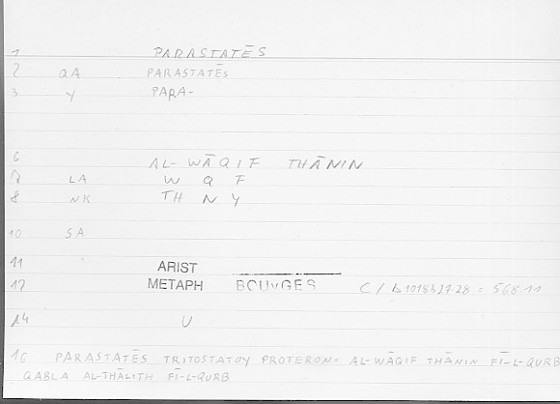 1 PARASTATĒS
2 QA PARASTATĒS
3 Y PARA-
6 AL-WĀQIF THĀNIN
7 LA W Q F
8 NK TH N Y
10 SA
11 ARIST
12 METAPH BOUYGES C/b 1018b27-28 = 568.11
14 U
16 PARASTATĒS TRITOSTATOY PROTERON = AL-WĀQIF THĀNIN FĪ-L-QURB
QABLA AL-THĀLITH FĪ-L-QURB